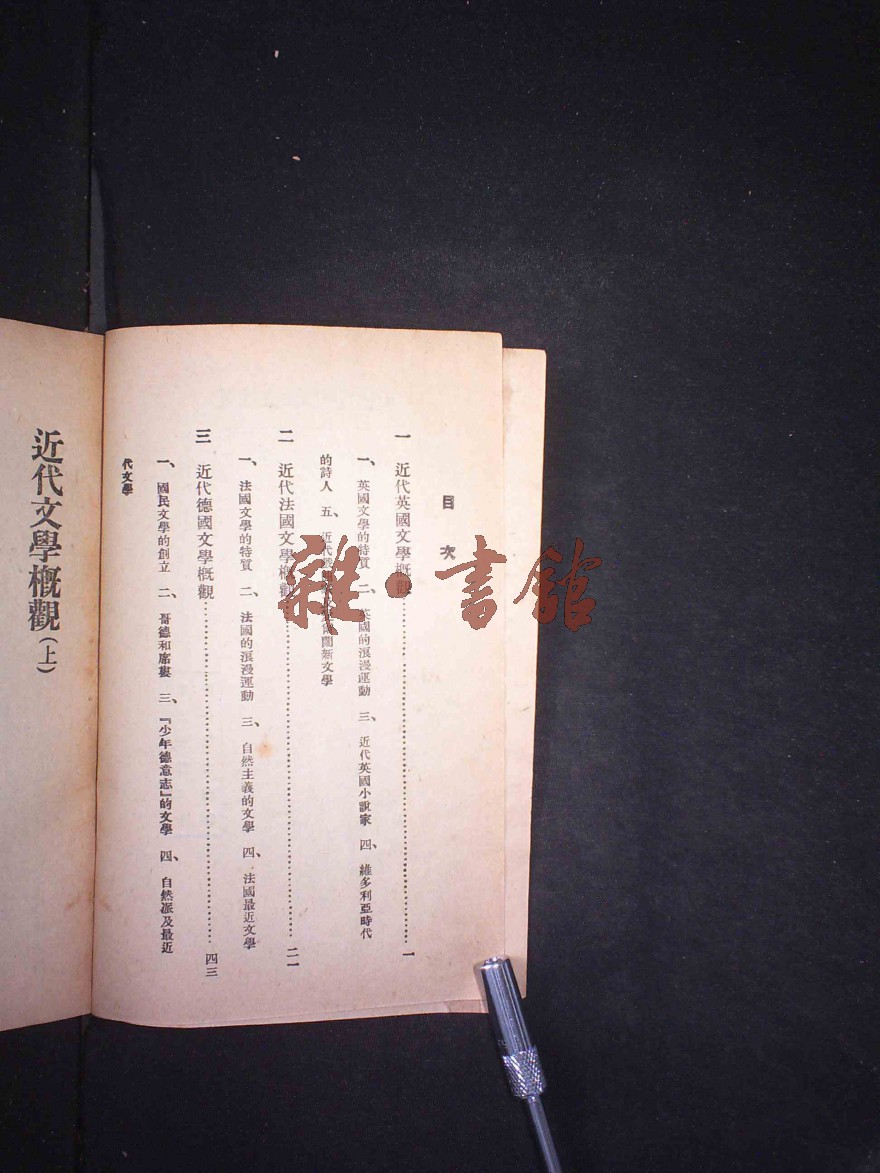 目次
一 近代英國文學概觀……一
一、英國文學的特質 二、英國的浪漫運動 三、近代英國小說家 四、維多利亞時代
的詩人 五、近代 新文學
二 近代法國文學概觀……二一
一、法國文學的特質 二、法國的浪漫運動 三、自然主義的文學 四、法國最近文學
三 近代德國文學概觀……四三
一、國民文學的創立 二、哥德和席婁 三、『少年德意志』的文學 四、自然派及最近
代文學
近代文學概觀(上)
雜·書館